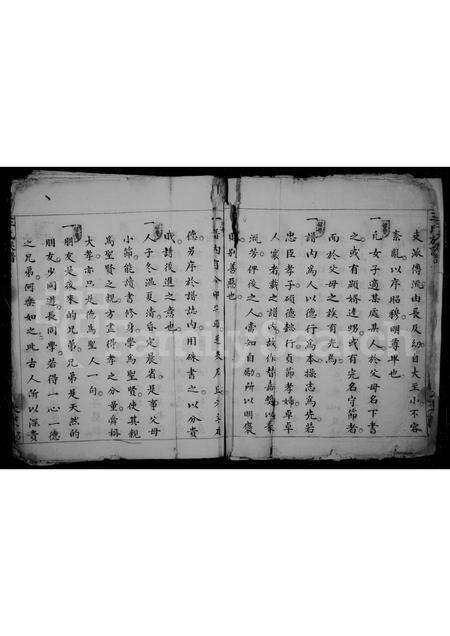 支派傳流由長及幼自大至小不容
紊亂以序昭穆明尊卑也
一凡女子適某處某人於父母名下書
之或有顯婿達甥或有完名守節者
而於父母之族有光焉
一譜內為人以德行為本操志為先若
忠臣孝子碩德懿行貞節孝婦卓卓
人家者載之譜內故作替嘉獎以
流芳俾後之人當知自勵所以明褒
別善惡也
一譜內有
德另序於譜誌內用硃書之以分貴
賤諸後進之意也
一人子冬溫夏凊昏定晨省是事父母
小節能讀書修身學為聖賢使其親
為聖賢之親方盡得孝之分量舜稱
大孝亦只是德為聖人一句
一朋友是後來的兄弟兄弟是天然的
朋友少同遊長同學若得一心一德
之兄弟何樂如之此古人所以深貴